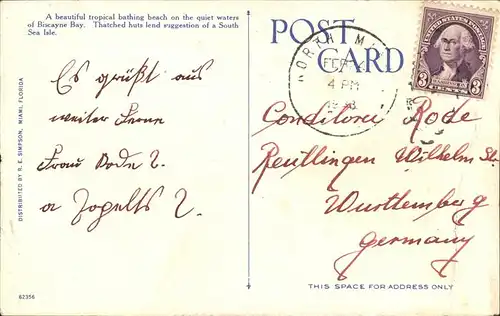 A beautiful tropical bathing beach on the quiet waters
of Biscayne Bay. Thatched huts lend suggestion of a South
Sea Isle.
POST
CARD
NORTH MI
FEB
4 PM
UNITED STATES POSTAGE
3 3
Es grüßt aus
weiter Ferne
Frau
DISTRIBUTED BY R. E. SIMPSON, MIAMI, FLORIDA
Conditorei Rode
Reutlingen Wilhelm St.
Wurttemberg
Germany
THIS SPACE FOR ADDRESS ONLY
62356